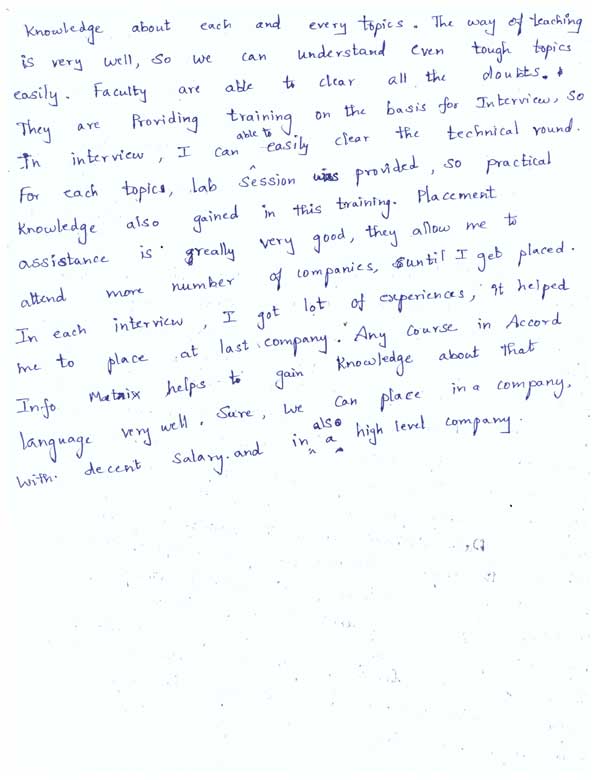 Knowledge about each and every topics. The way of teaching
is very well, so we can understand even tough topics
easily. Faculty are able to clear all the doubts.
They are Providing training on the basis for Interview, so
In interview, I can able to easily clear the technical round.
For each topics, Lab Session was provided, so practical
Knowledge also gained in this training. Placement
assistance is greally very good, they allow me to
attend more number of companies, until I get placed.
In each interview, I got lot of experiences, it helped
me to place at last company. Any Course in Accord
Info Matrix helps to gain Knowledge about that
language very well. Sure, we can place in a company,
with decent salary. and in also a high level company.